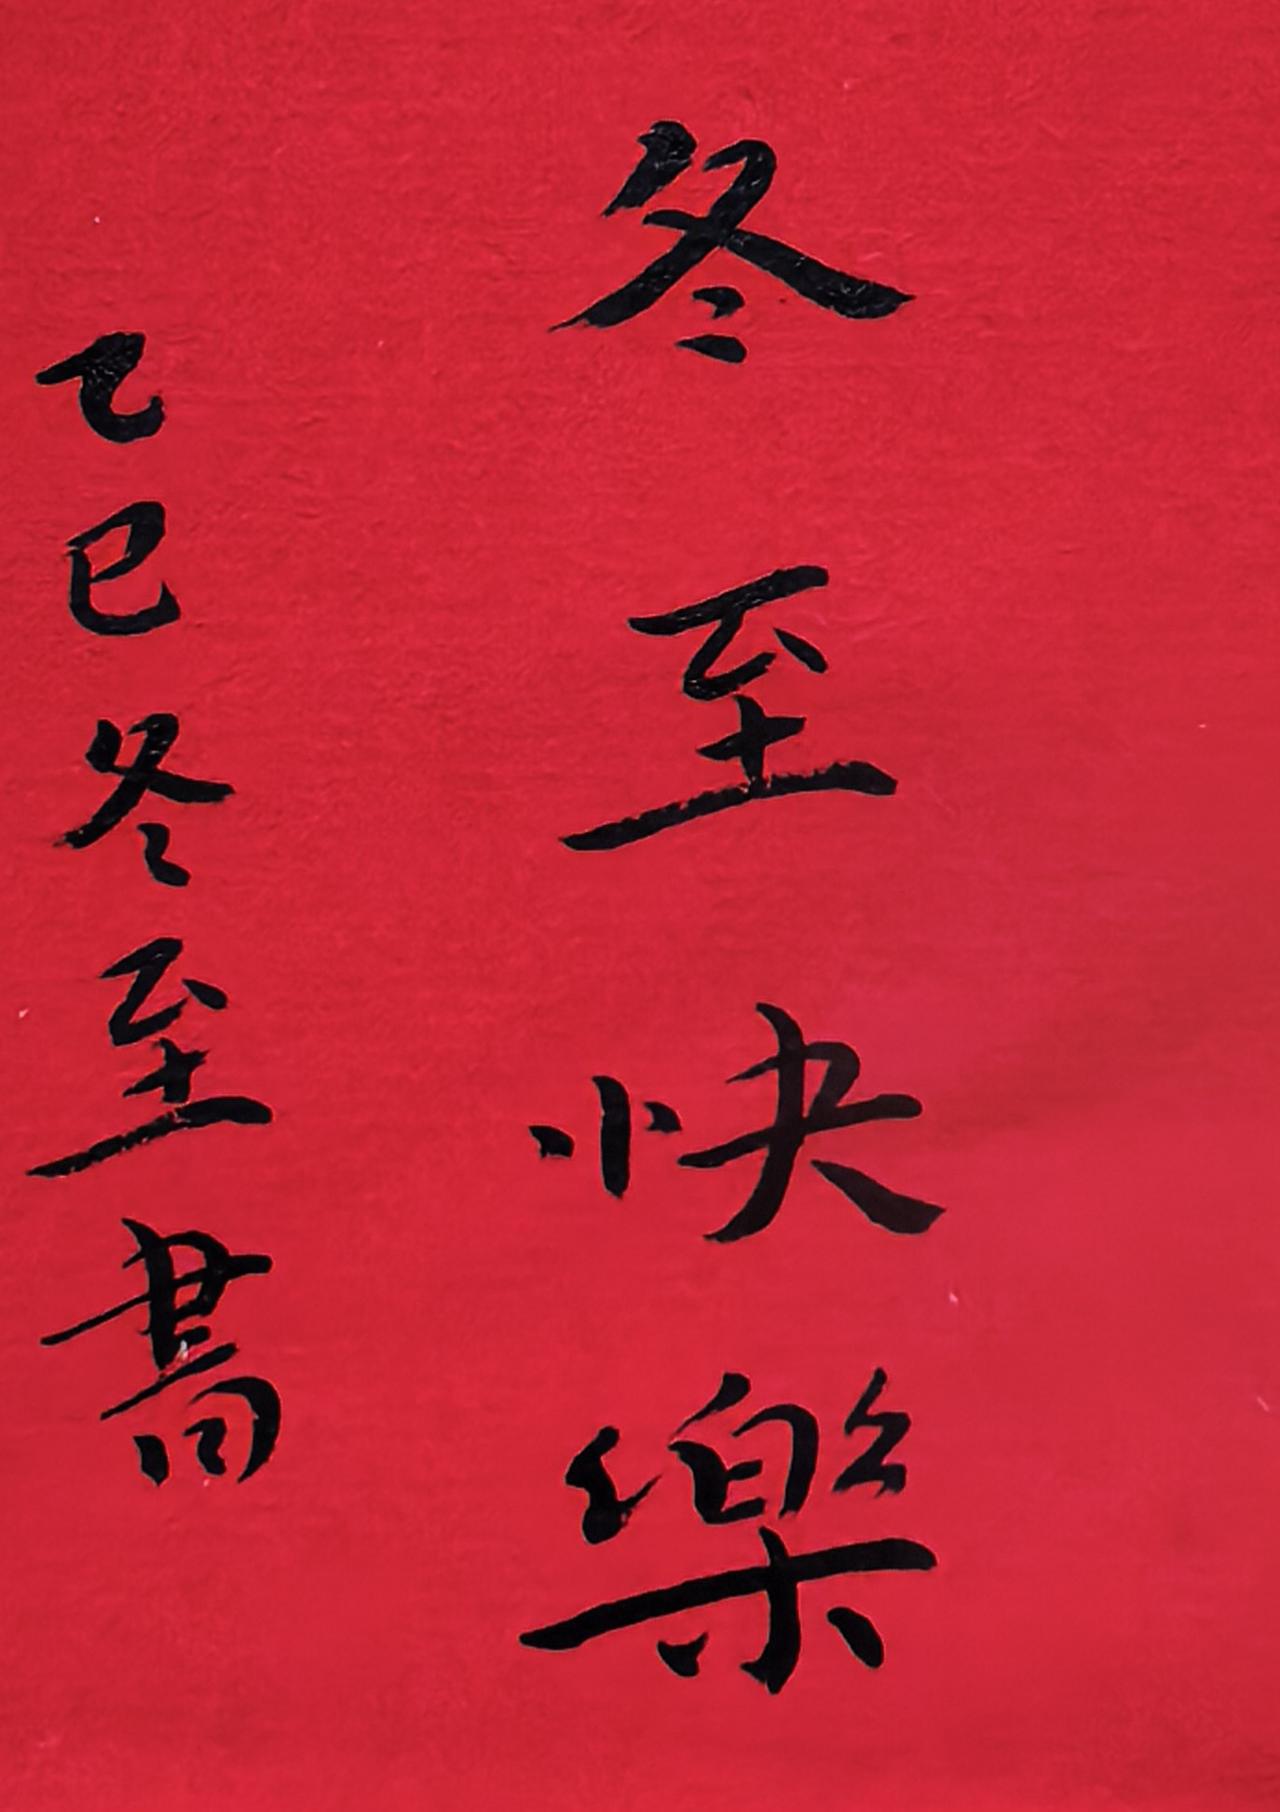 冬至快樂
乙巳冬至書